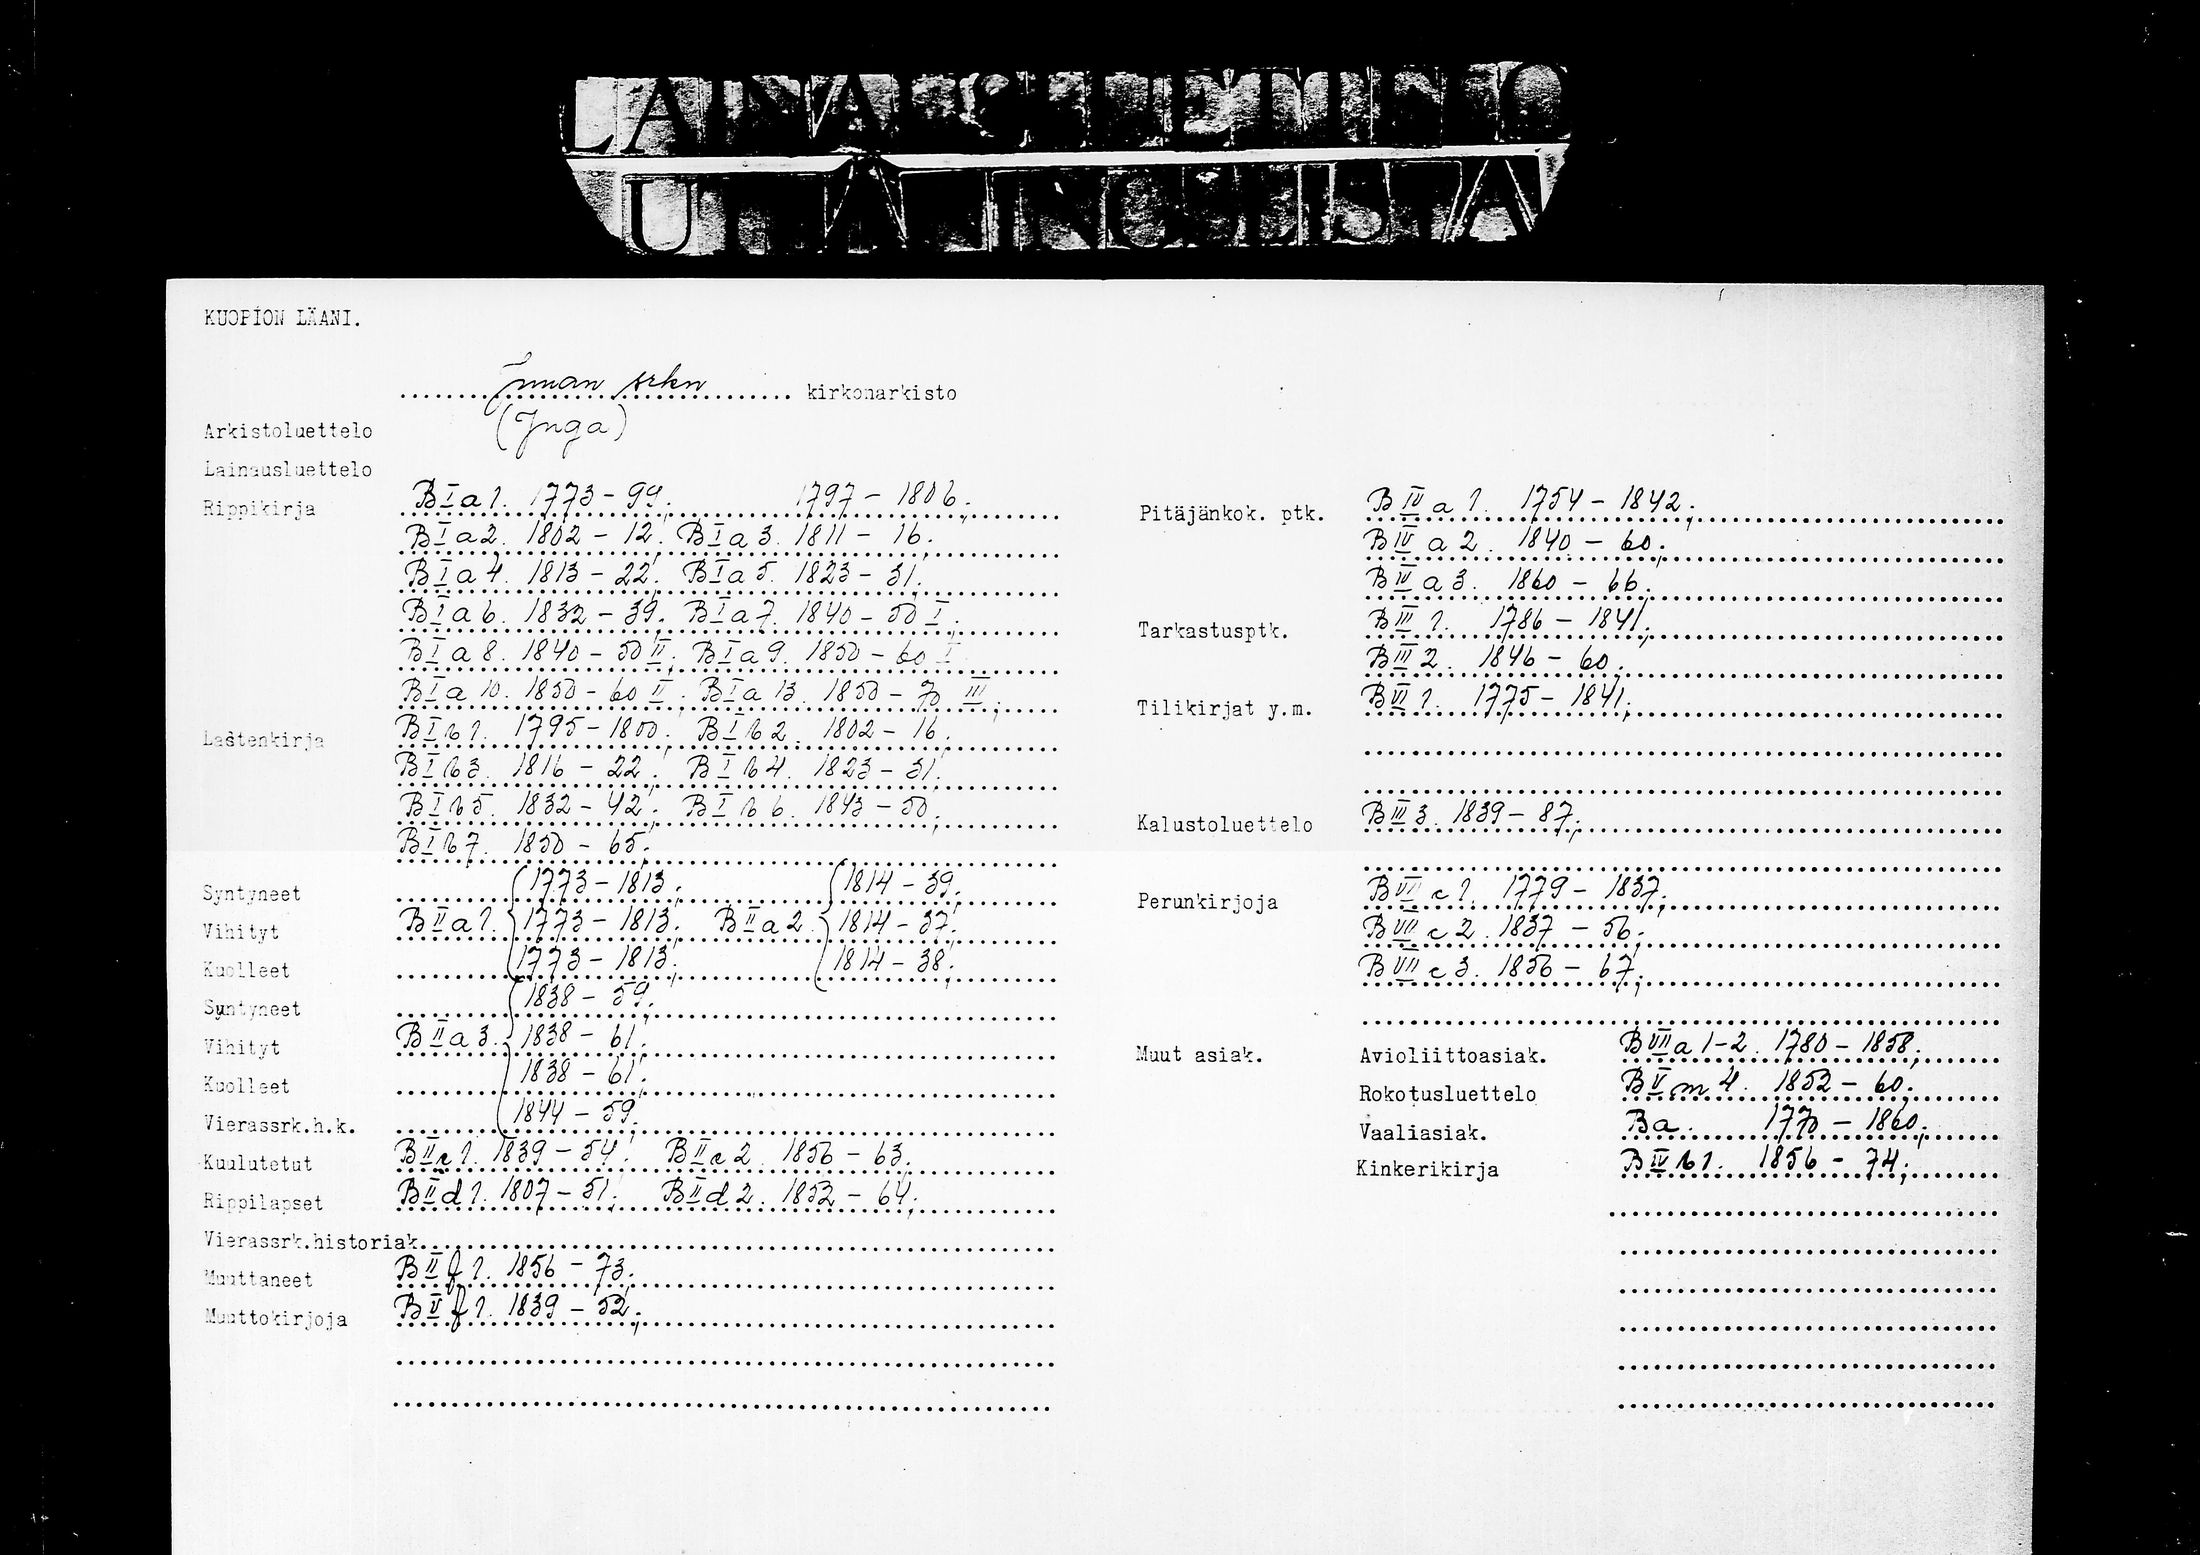 LAINAUSLUETTELO
UTLÅNINGSLISTA
KUOPION LÄÄNI.
Juuan srkn kirkonarkisto
Arkistoluettelo (Juga)
Lainausluettelo
Rippikirja B I a 1. 1773 - 99. 1797 - 1806;
B I a 2. 1802 - 12; B I a 3. 1811 - 16;
B I a 4. 1813 - 22; B I a 5. 1823 - 31;
B I a 6. 1832 - 39; B I a 7. 1840 - 50 I;
B I a 8. 1840 - 50 II; B I a 9. 1850 - 60 I
B I a 10. 1850 - 60 II; B I a 13. 1850 - 70 III;
Lastenkirja B I b 1. 1795 - 1800; B I b 2. 1802 - 16;
B I b 3. 1816 - 22; B I b 4. 1823 - 31;
B I b 5. 1832 - 42; B I b 6. 1843 - 50;
B I b 7. 1850 - 65;
Syntyneet 1773 - 1813; 1814 - 39;
Vihityt B II a 1. 1773 - 1813; B II a 2. 1814 - 37;
Kuolleet 1773 - 1813; 1814 - 38;
Syntyneet 1838 - 59;
Vihityt B II a 3. 1838 - 61;
Kuolleet 1838 - 61;
Vierassrk.h.k. 1844 - 59;
Kuulutetut B II c 1. 1839 - 54; B II c 2. 1856 - 63;
Rippilapset B II d 1. 1807 - 51; B II d 2. 1852 - 64;
Vierassrk.historiak.
Muuttaneet B II f 1. 1856 - 73;
Muuttokirjoja B V f 1. 1839 - 52;
Pitäjänkok. ptk. B IV a 1. 1754 - 1842;
B IV a 2. 1840 - 60;
B IV a 3. 1860 - 66;
Tarkastusptk. B III 1. 1786 - 1841;
B III 2. 1846 - 60;
Tilikirjat y.m. B VI 1. 1775 - 1841;
Kalustoluettelo B III 3. 1839 - 87;
Perunkirjoja B VII c 1. 1779 - 1837;
B VII c 2. 1837 - 56;
B VII c 3. 1856 - 67;
Muut asiak. Avioliittoasiak. B VII a 1-2. 1780 - 1858;
Rokotusluettelo B V m 4. 1852 - 60;
Vaaliasiak. Ba. 1770 - 1860;
Kinkerikirja B IV b 1. 1856 - 74;